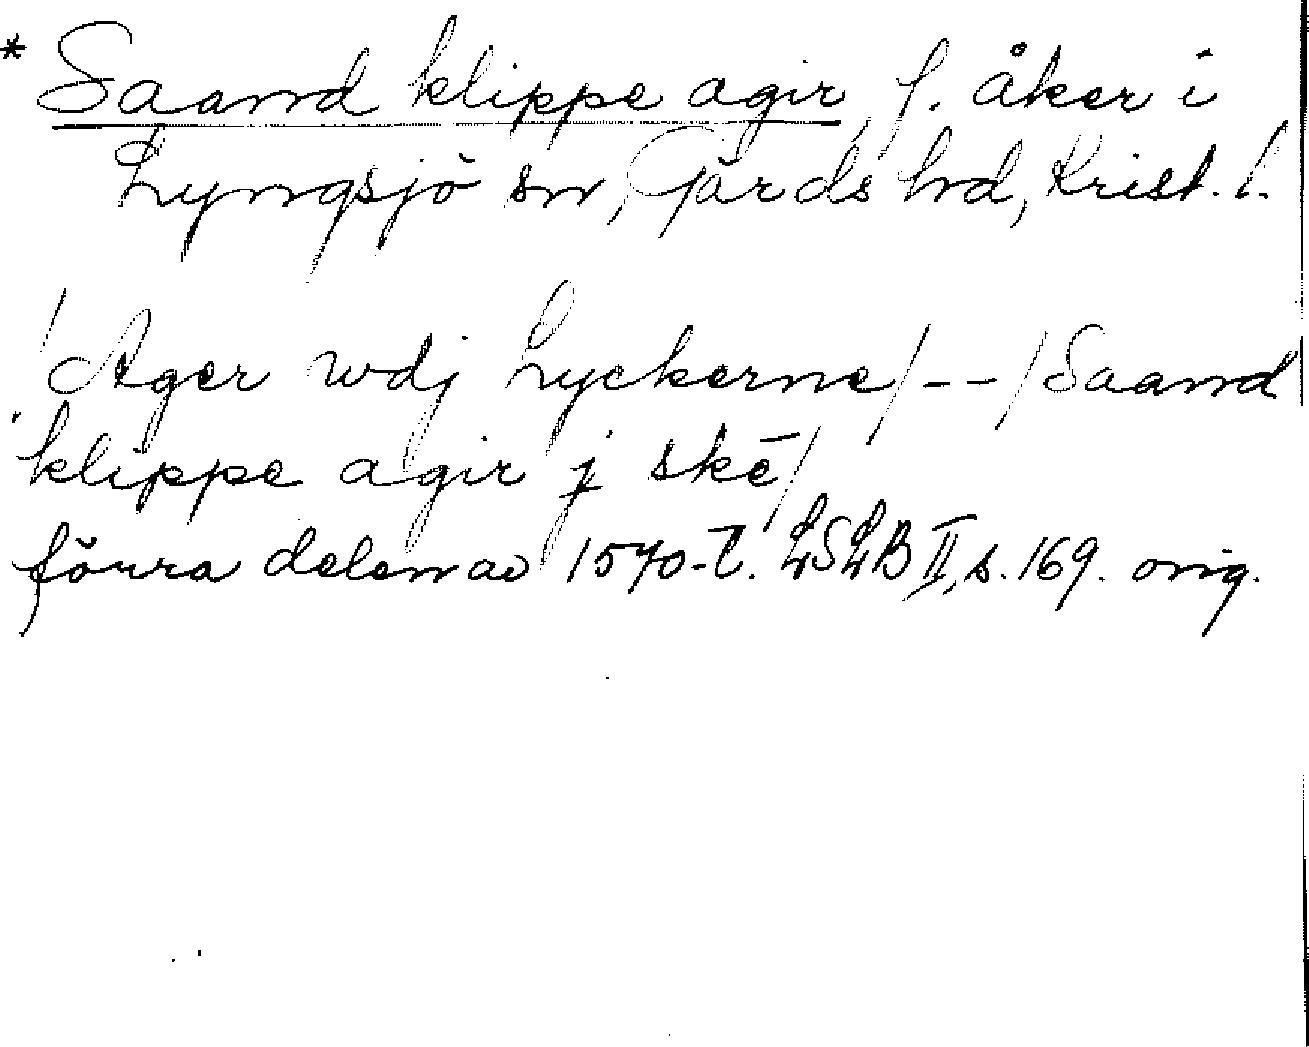 * Saand klippe agir, f. åker i
Lyngsjö sn, Gärds hd, Krist. l.
/Ager wdj Lyckerne/--/Saand
klippe agir j skē/
förra delen av 1570-t. LSLB II, s. 169. orig.